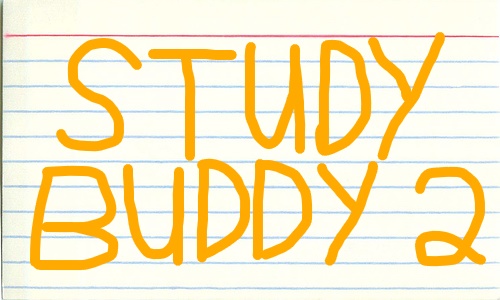 STUDY
BUDDY 2